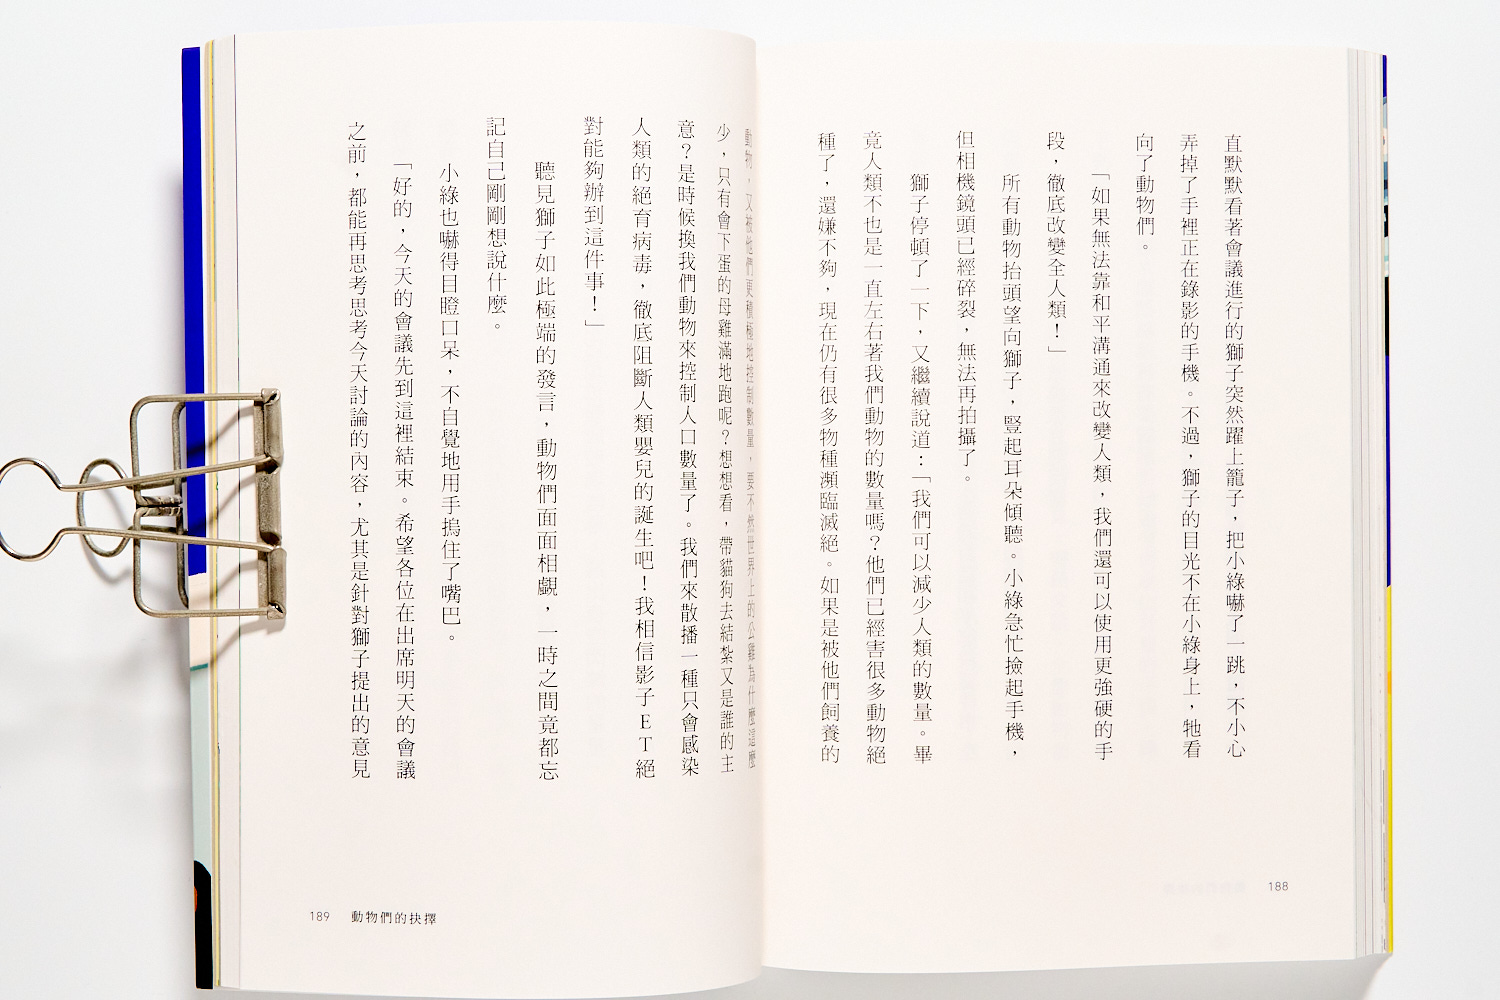 直默默看著會議進行的獅子突然躍上籠子，把小綠嚇了一跳，不小心
弄掉了手裡正在錄影的手機。不過，獅子的目光不在小綠身上，牠看
向了動物們。
「如果無法靠和平溝通來改變人類，我們還可以使用更強硬的手
段，徹底改變全人類！」
所有動物抬頭望向獅子，豎起耳朵傾聽。小綠急忙撿起手機，
但相機鏡頭已經碎裂，無法再拍攝了。
獅子停頓了一下，又繼續說道：「我們可以減少人類的數量。畢
竟人類不也是一直左右著我們動物的數量嗎？他們已經害很多動物絕
種了，還嫌不夠，現在仍有很多物種瀕臨滅絕。如果是被他們飼養的
188
動物，又被他們更積極地控制數量，要不然世界上的公雞為什麼這麼
少，只有會下蛋的母雞滿地跑呢？想想看，帶貓狗去結紮又是誰的主
意？是時候換我們動物來控制人口數量了。我們來散播一種只會感染
人類的絕育病毒，徹底阻斷人類嬰兒的誕生吧！我相信影子ＥＴ絕
對能夠辦到這件事！」
聽見獅子如此極端的發言，動物們面面相覷，一時之間竟都忘
記自己剛剛想說什麼。
小綠也嚇得目瞪口呆，不自覺地用手摀住了嘴巴。
「好的，今天的會議先到這裡結束。希望各位在出席明天的會議
之前，都能再思考思考今天討論的內容，尤其是針對獅子提出的意見
189 動物們的抉擇